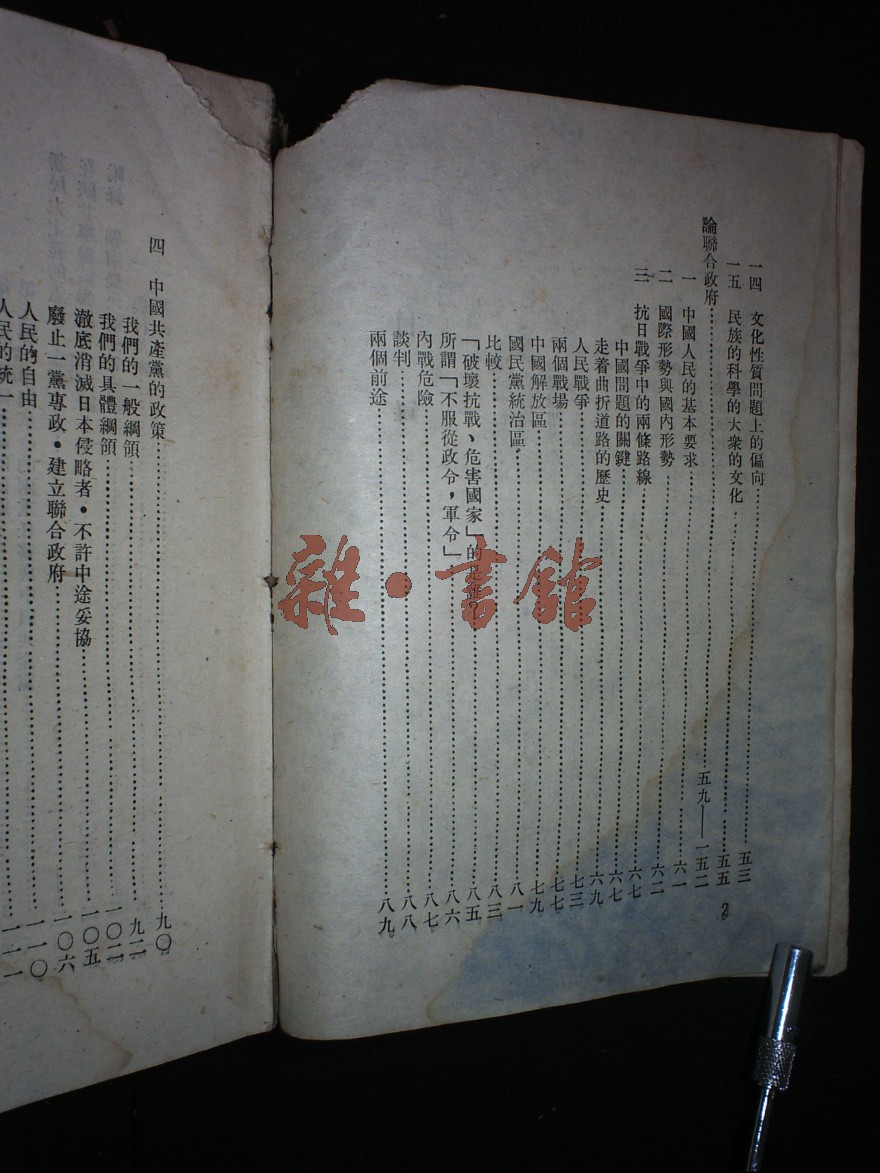 一四 文化性質問題上的偏向 五三
一五 民族的科學的大衆的文化 五五
論聯合政府 五九——一五二
一 中國人民的基本要求 六一
二 國際形勢與國內形勢 六二
三 抗日戰爭中的兩條路線 六七
中國問題的關鍵 六七
走着曲折道路的歷史 六九
人民戰爭 七三
兩個戰場 七七
中國解放區 七九
國民黨統治區 八一
比較 八三
「破壞抗戰、危害國家」的是誰 八五
所謂「不服從政令，軍令」 八六
內戰危險 八七
談判 八八
兩個前途 八九
2
四 中國共產黨的政策 九〇
我們的一般綱領 九二
我們的具體綱領 一〇二
澈底消滅日本侵略者·不許中途妥協 一〇五
廢止一黨專政·建立聯合政府 一〇六
人民的自由 一一〇
人民的統一 一一一
雜·書館